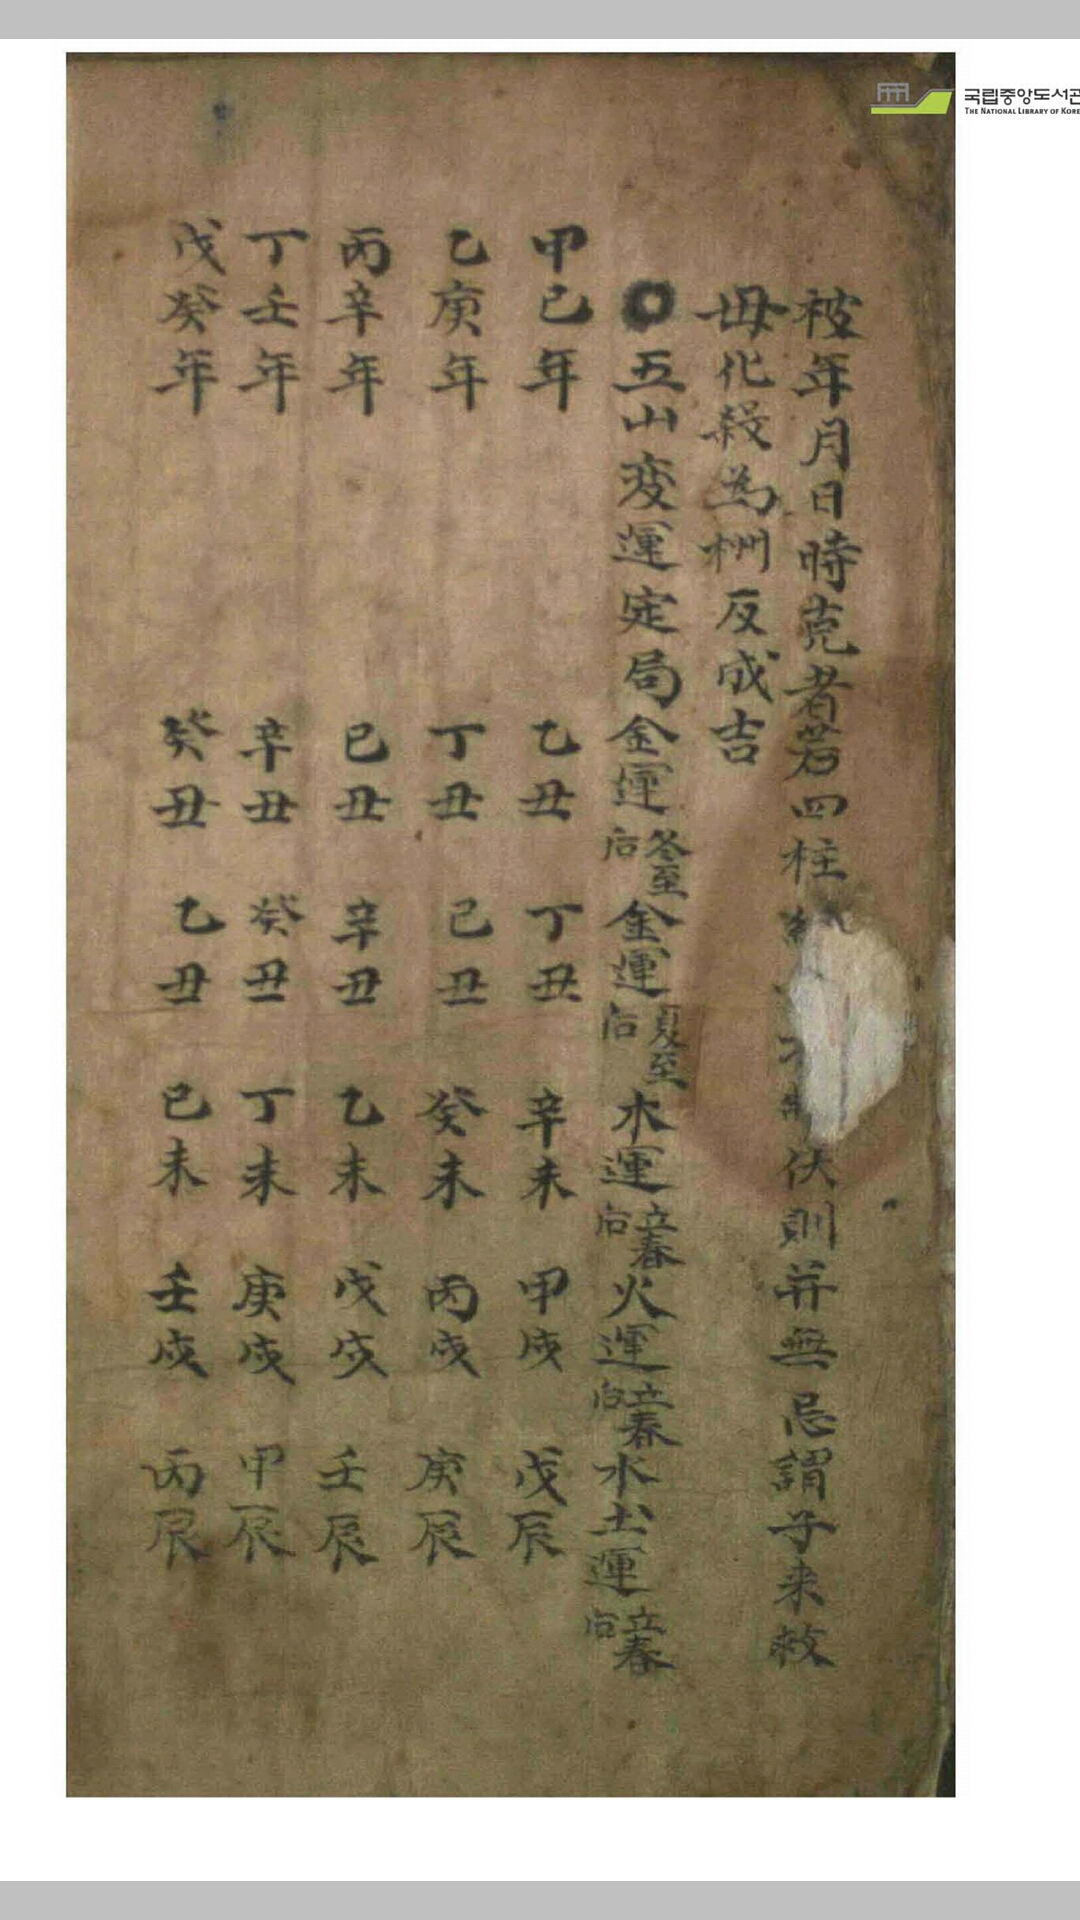 국립중앙도서관
THE NATIONAL LIBRARY OF KORE
被年月日時克者若四柱 伏則并無忌謂子来救
毋化殺為 反成吉
○五山変運定局金運冬至后金運夏至后水運立春后火運立春后水土運立春后
甲己年 乙丑 丁丑 辛未 甲戌 戊辰
乙庚年 丁丑 己丑 癸未 丙戌 庚辰
丙辛年 己丑 辛丑 乙未 戊戌 壬辰
丁壬年 辛丑 癸丑 丁未 庚戌 甲辰
戊癸年 癸丑 乙丑 己未 壬戌 丙辰